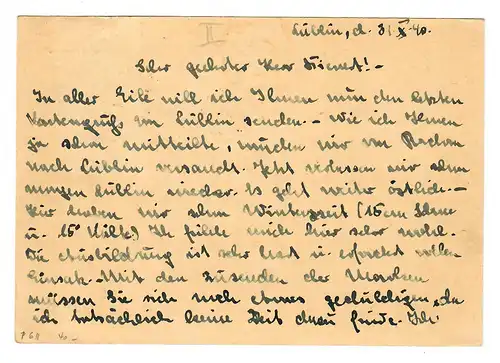 II
Lublin, d. 31. X. 40.
Sehr geehrter Herr !–
In aller Eile will ich Ihnen nun den letzten
Kartengruß aus Lublin senden. – Wie ich Ihnen
ja schon mitteilte, wurden wir von Radom
nach Lublin versandt. Jetzt verlassen wir schon
morgen Lublin wieder. Es geht weiter östlich. –
Hier haben wir schon Winterzeit (15 cm Schnee
u. 15° Kälte) Ich fühle mich hier sehr wohl.
Die Ausbildung ist sehr hart u. erfordert vollen
Einsatz. – Mit dem Zusenden der Marken
müssen Sie sich noch etwas gedulden, da
ich tatsächlich keine Zeit dazu finde. Ich